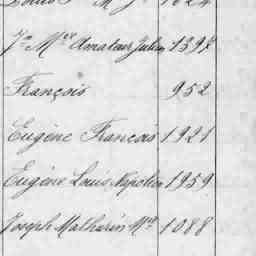 1624
Jn Mie Amateur Julien 1397
François 952
Eugène François 1921
Eugène Louis Napoléon 1959
Joseph Mathurin Mie 1088